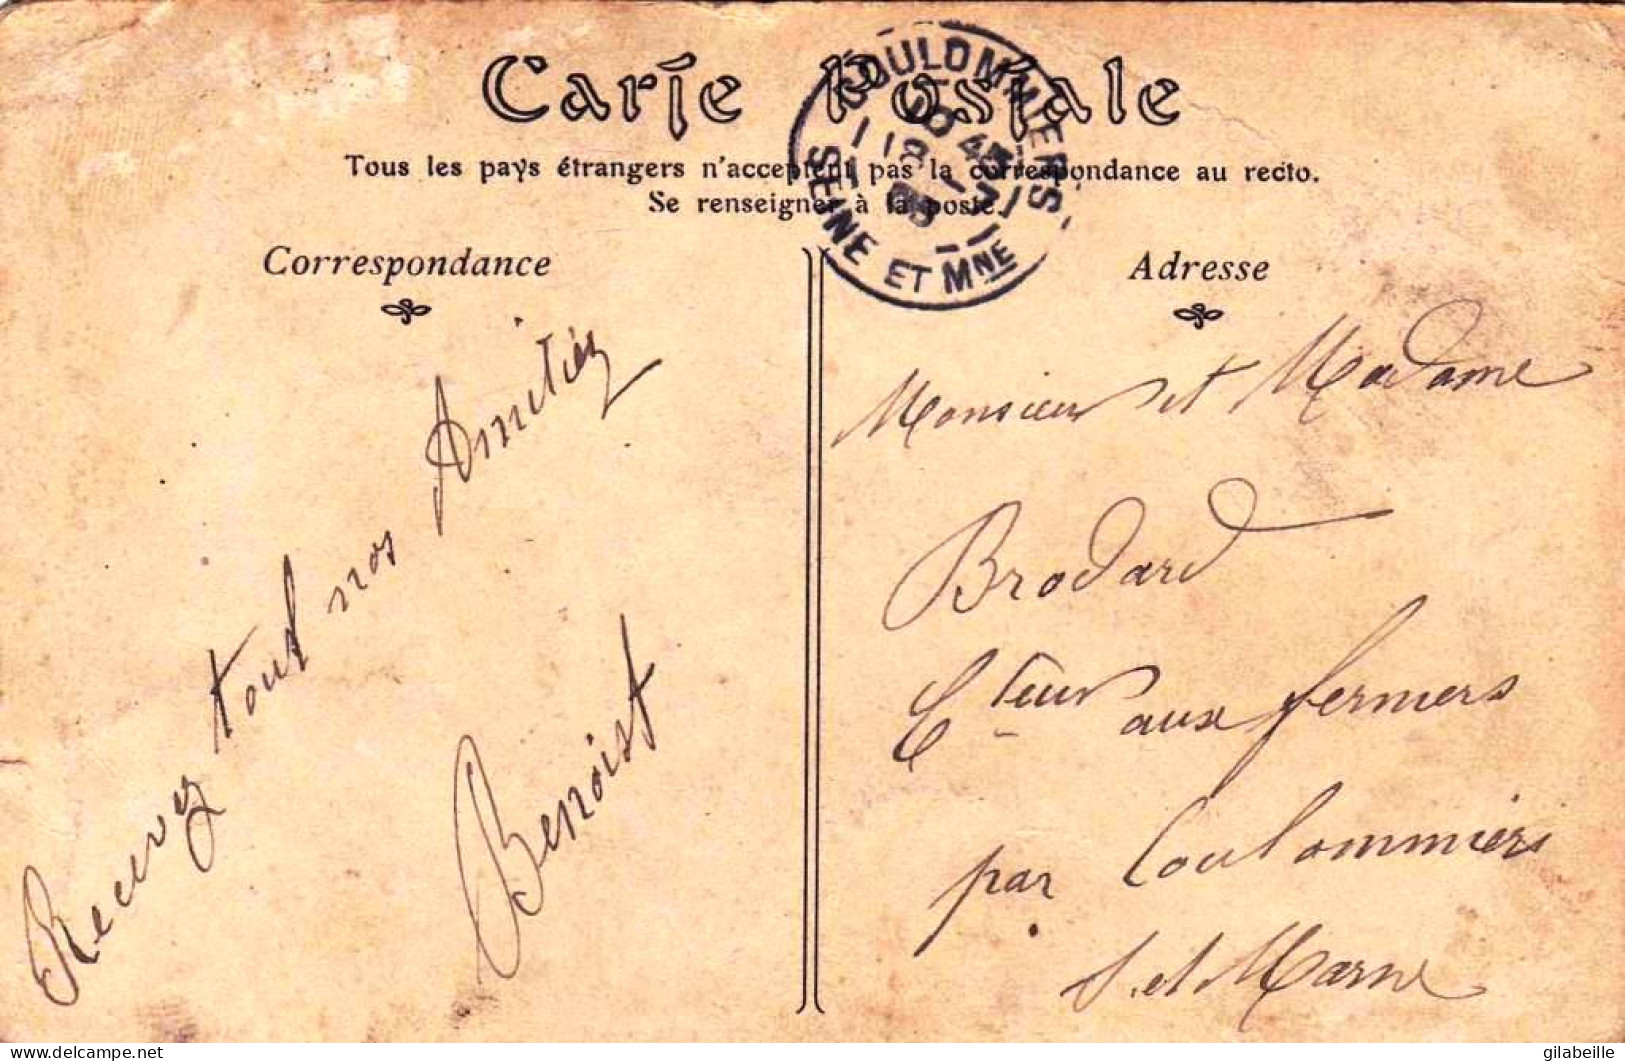 Carte Postale
Tous les pays étrangers n'acceptent pas la correspondance au recto.
Se renseigner à la poste.
COULOMMIERS
SEINE ET MNE
Correspondance
Recevez tout nos Amitiéz
Benoist
Adresse
Monsieur et Madame
Brodard
Cteur aux fermers
par Coulommiers
S. et Marne
delcampe.net
gilabeille